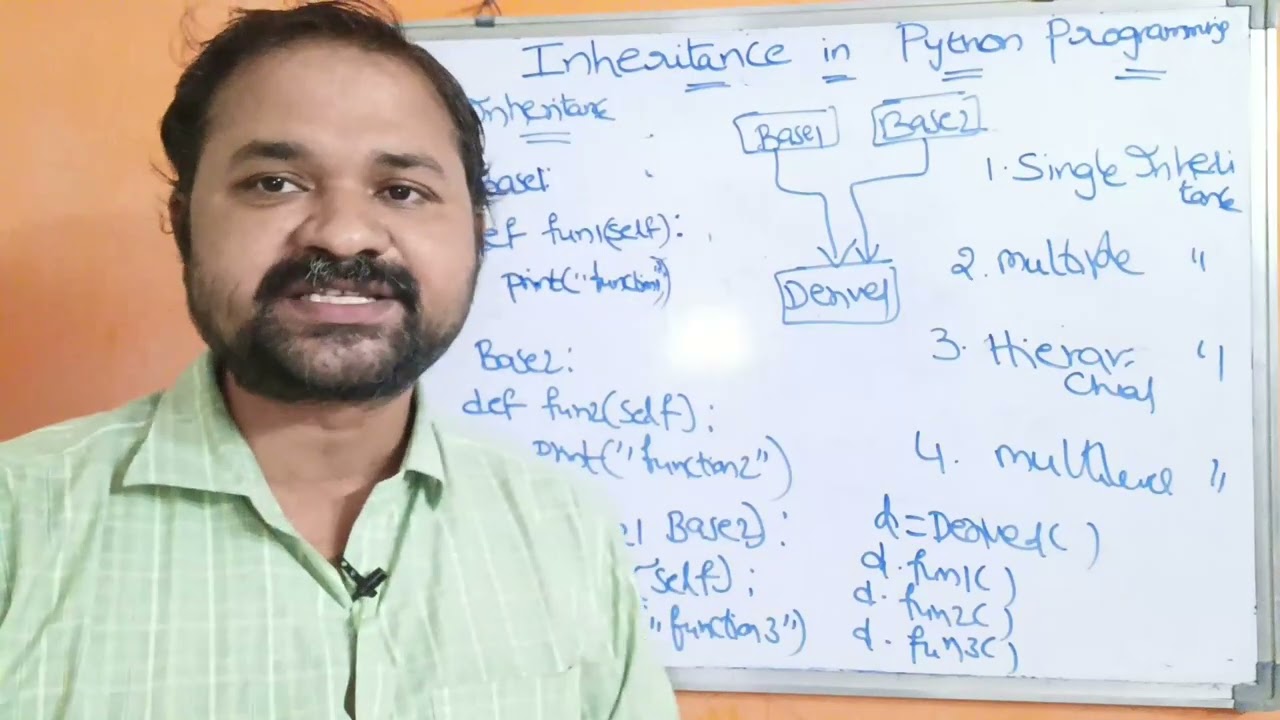 Inheritance in Python Programming
Inheritance
Base1 Base2
Base1:
1. Single Inheri
tance
def fun1(self):
2. multiple "
print("function1")
Derived
3. Hierar
chial "
Base2:
def fun2(self):
print("function2")
4. multilevel "
Base2):
d=Derived()
self):
d.fun1()
"function3")
d.fun2()
d.fun3()